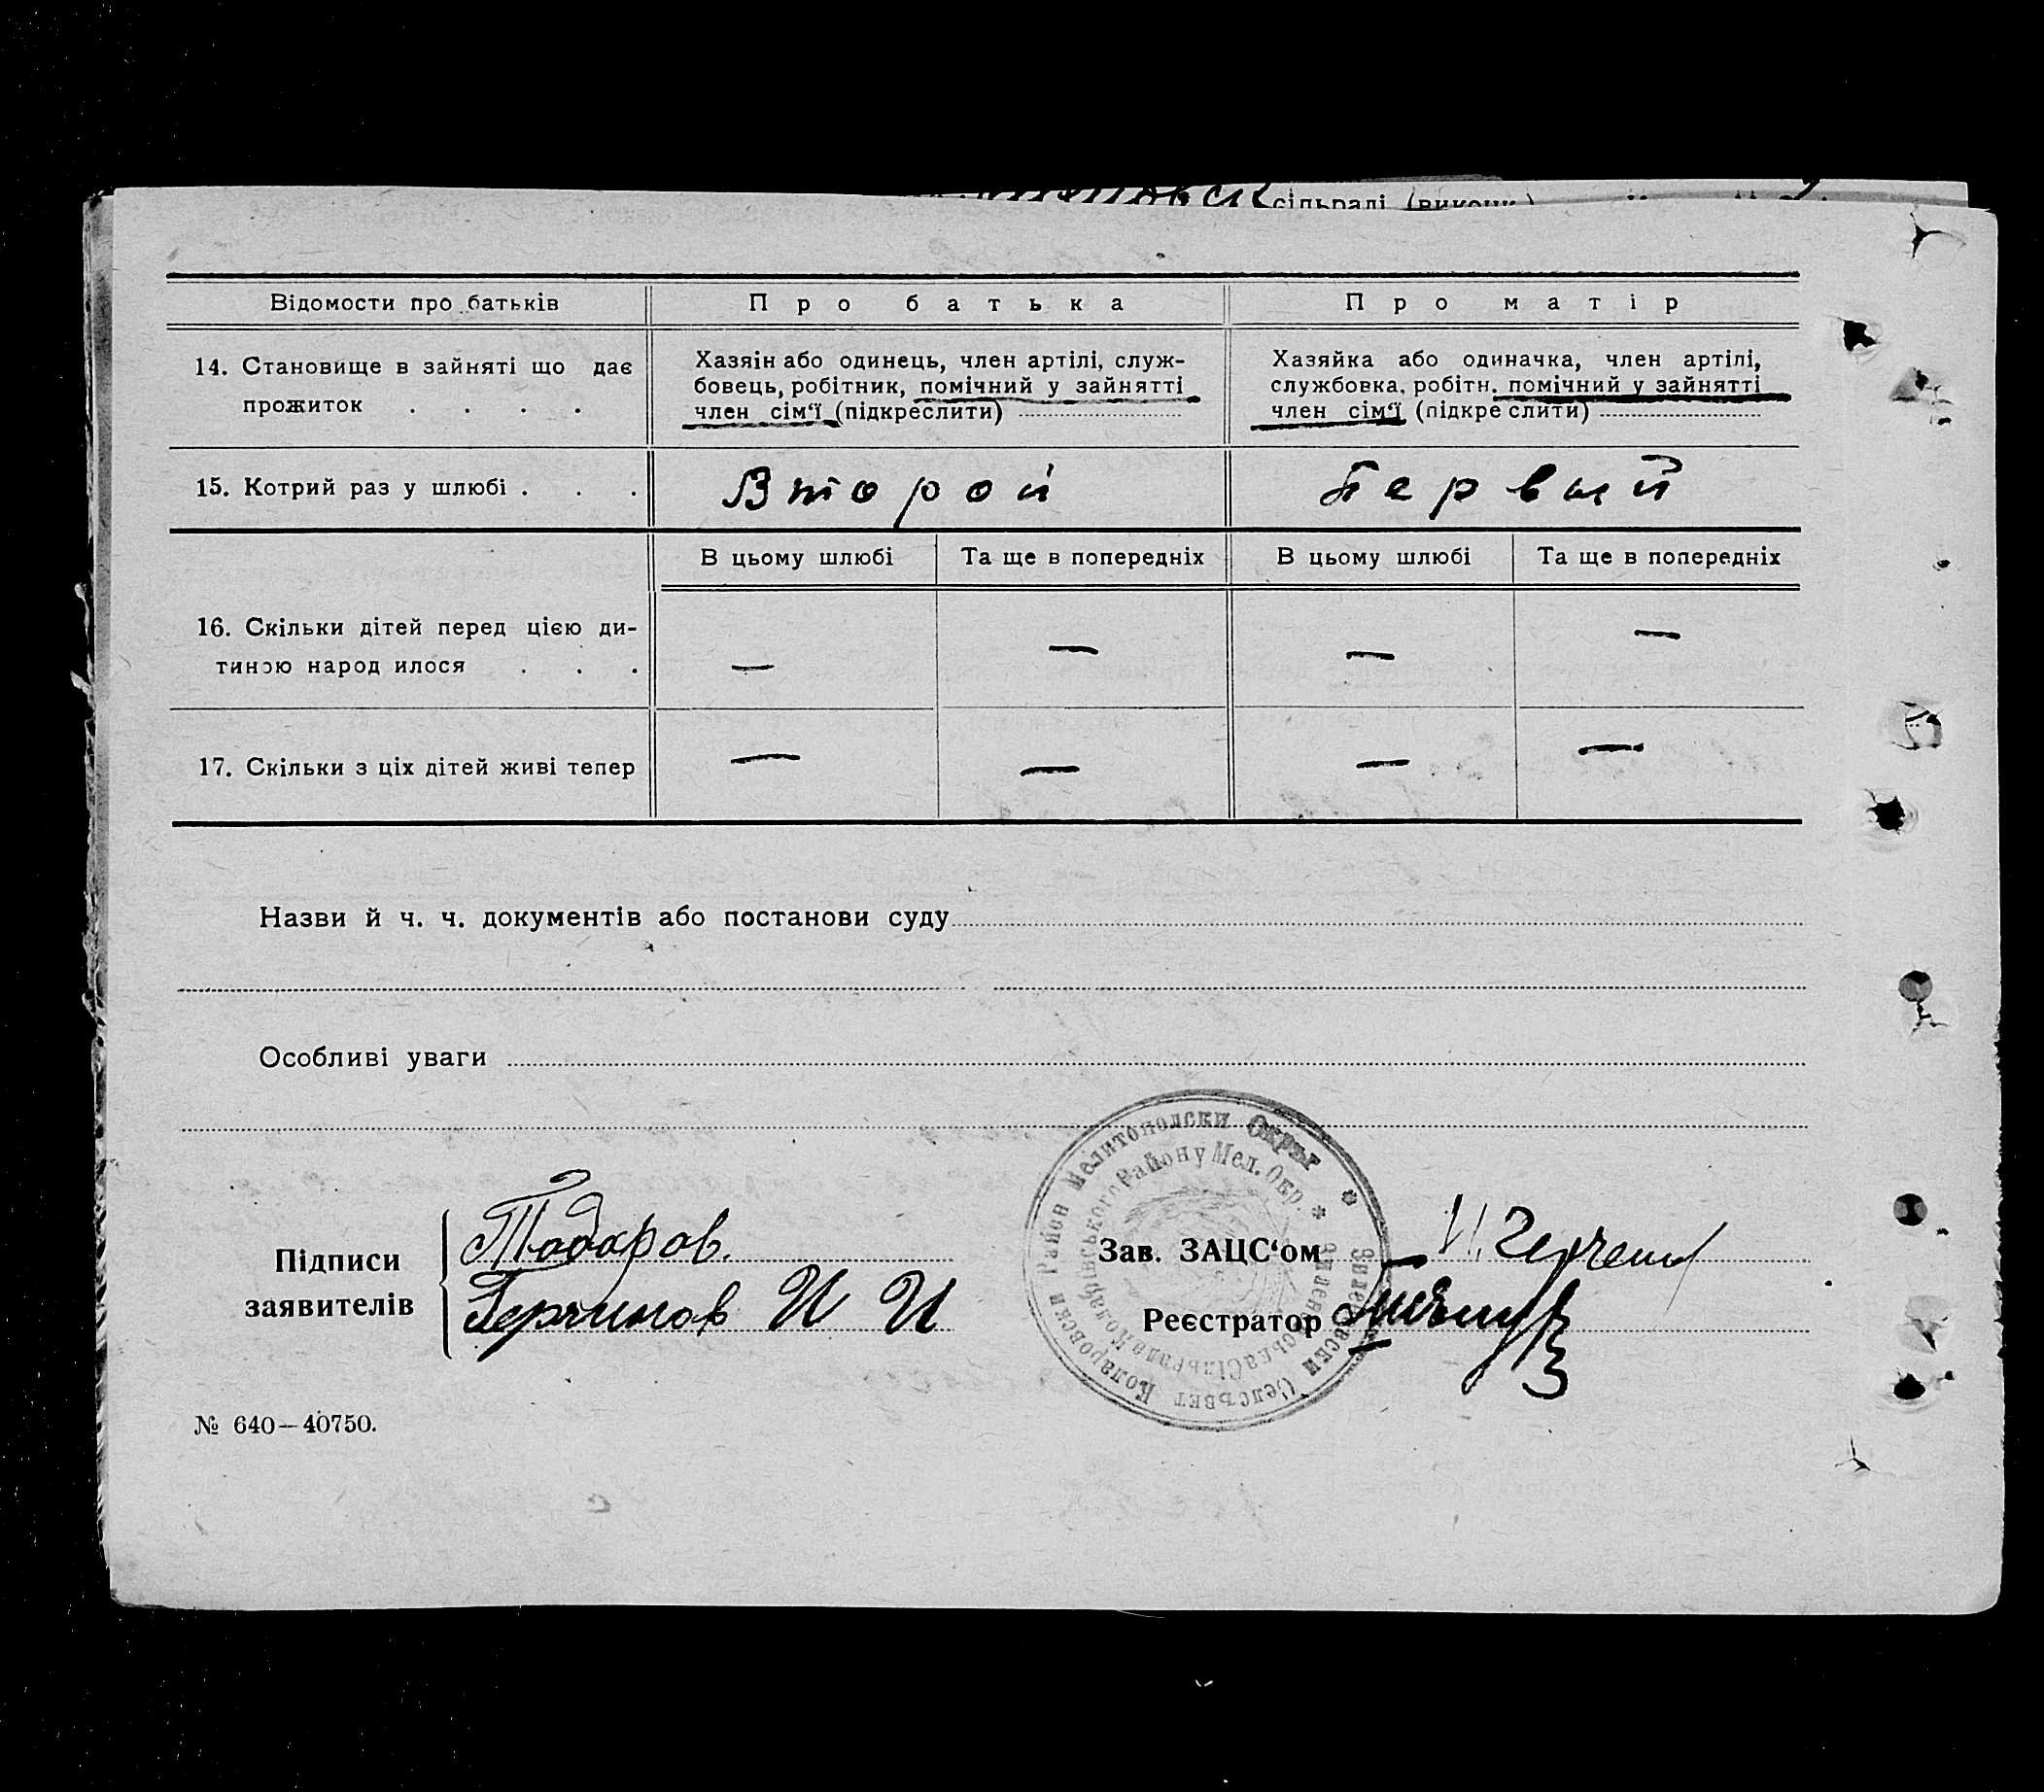 сільраді (викон.)
Відомости про батьків Про батька Про матір
14. Становище в зайняті що дає прожиток . . . .
Хазяін або одинець, член артілі, служ-
бовець, робітник, помічний у зайнятті
член сім‘ї (підкреслити)
Хазяйка або одиначка, член артілі,
службовка, робітн. помічний у зайнятті
член сім‘ї (підкреслити)
15. Котрий раз у шлюбі . . . Второй Первый
В цьому шлюбі Та ще в попередніх В цьому шлюбі Та ще в попередніх
16. Скільки дітей перед цією ди-
тиною народилося . . . — — — —
17. Скільки з ціх дітей живі тепер — — — —
Назви й ч. ч. документів або постанови суду
Особливі уваги
Підписи
заявителів
Тодоров.
Герчинов И И
Коларовски Район Мелитополски Окръг *
Селъвет
Коларівського Району Мел. Окр. *
Сільрада
Зав. ЗАЦС‘ом
Реєстратор
№ 640—40750.